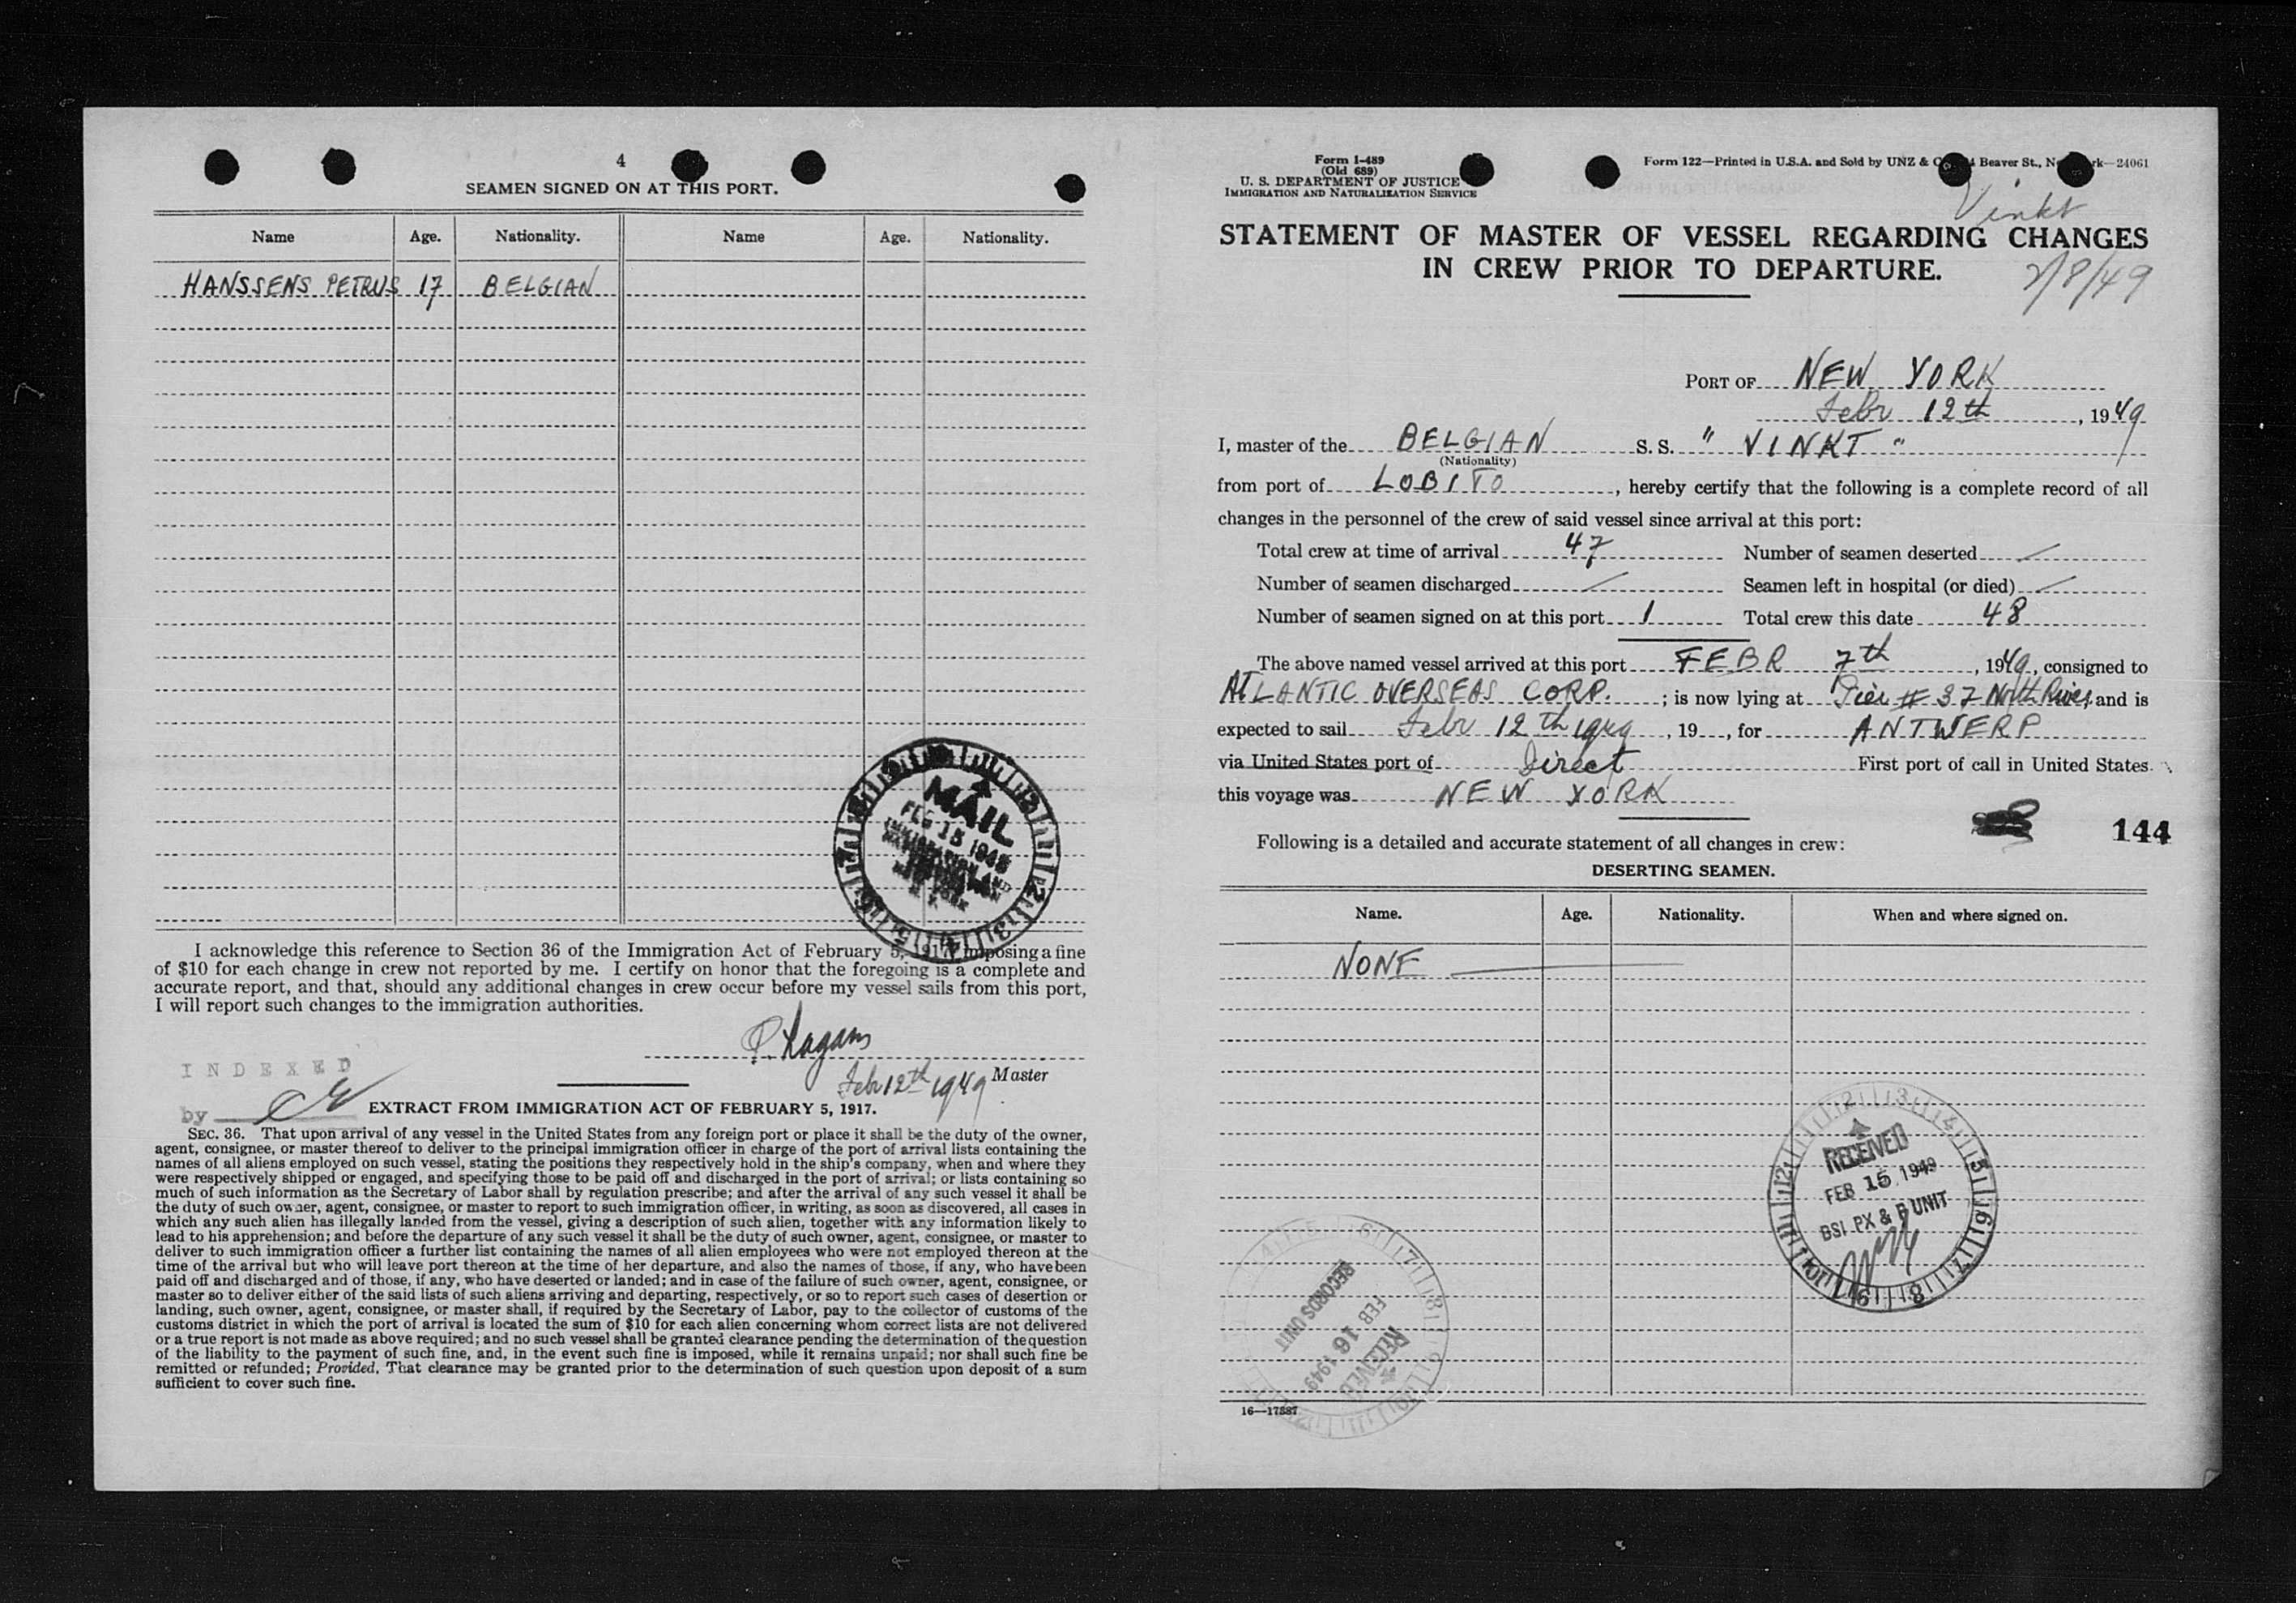 4
SEAMEN SIGNED ON AT THIS PORT.
Name Age. Nationality. Name Age. Nationality.
HANSSENS PETRUS 17 BELGIAN
MAIL
FEB 15 1949
I acknowledge this reference to Section 36 of the Immigration Act of February 5, 1917, imposing a fine
of $10 for each change in crew not reported by me. I certify on honor that the foregoing is a complete and
accurate report, and that, should any additional changes in crew occur before my vessel sails from this port,
I will report such changes to the immigration authorities.
Febr 12th 1949 Master
INDEXED
by
EXTRACT FROM IMMIGRATION ACT OF FEBRUARY 5, 1917.
SEC. 36. That upon arrival of any vessel in the United States from any foreign port or place it shall be the duty of the owner,
agent, consignee, or master thereof to deliver to the principal immigration officer in charge of the port of arrival lists containing the
names of all aliens employed on such vessel, stating the positions they respectively hold in the ship's company, when and where they
were respectively shipped or engaged, and specifying those to be paid off and discharged in the port of arrival; or lists containing so
much of such information as the Secretary of Labor shall by regulation prescribe; and after the arrival of any such vessel it shall be
the duty of such owner, agent, consignee, or master to report to such immigration officer, in writing, as soon as discovered, all cases in
which any such alien has illegally landed from the vessel, giving a description of such alien, together with any information likely to
lead to his apprehension; and before the departure of any such vessel it shall be the duty of such owner, agent, consignee, or master to
deliver to such immigration officer a further list containing the names of all alien employees who were not employed thereon at the
time of the arrival but who will leave port thereon at the time of her departure, and also the names of those, if any, who have been
paid off and discharged and of those, if any, who have deserted or landed; and in case of the failure of such owner, agent, consignee, or
master so to deliver either of the said lists of such aliens arriving and departing, respectively, or so to report such cases of desertion or
landing, such owner, agent, consignee, or master shall, if required by the Secretary of Labor, pay to the collector of customs of the
customs district in which the port of arrival is located the sum of $10 for each alien concerning whom correct lists are not delivered
or a true report is not made as above required; and no such vessel shall be granted clearance pending the determination of the question
of the liability to the payment of such fine, and, in the event such fine is imposed, while it remains unpaid; nor shall such fine be
remitted or refunded; Provided, That clearance may be granted prior to the determination of such question upon deposit of a sum
sufficient to cover such fine.
Form I-489
(Old 689)
U. S. DEPARTMENT OF JUSTICE
IMMIGRATION AND NATURALIZATION SERVICE
Form 122—Printed in U.S.A. and Sold by UNZ & Beaver St., 24061
Vinkt
STATEMENT OF MASTER OF VESSEL REGARDING CHANGES
IN CREW PRIOR TO DEPARTURE.
2/8/49
PORT OF NEW YORK
Febr 12th, 1949
I, master of the BELGIAN S. S. " VINKT "
(Nationality)
from port of LOBITO, hereby certify that the following is a complete record of all
changes in the personnel of the crew of said vessel since arrival at this port:
Total crew at time of arrival 47 Number of seamen deserted /
Number of seamen discharged / Seamen left in hospital (or died) /
Number of seamen signed on at this port 1 Total crew this date 48
The above named vessel arrived at this port FEBR 7th, 1949, consigned to
ATLANTIC OVERSEAS CORP. ; is now lying at Pier # 37 North River and is
expected to sail Febr 12th 1949, 19 , for ANTWERP
via United States port of Direct First port of call in United States
this voyage was NEW YORK
144
Following is a detailed and accurate statement of all changes in crew:
DESERTING SEAMEN.
Name. Age. Nationality. When and where signed on.
NONE
RECEIVED
FEB 15 1949
BSI PX & B UNIT
RECEIVED
FEB 16 1949
RECORDS UNIT
16—17587